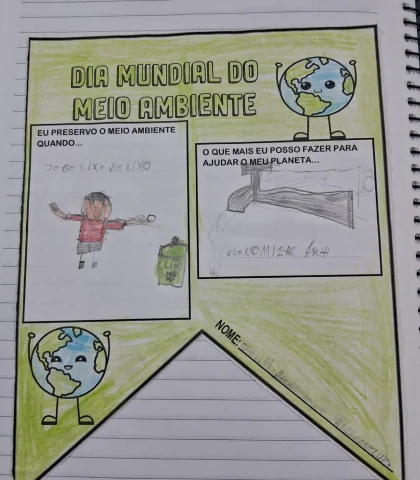 DIA MUNDIAL DO
MEIO AMBIENTE
EU PRESERVO O MEIO AMBIENTE
QUANDO...
JOGO LIXO NO LIXO
LIXO
O QUE MAIS EU POSSO FAZER PARA
AJUDAR O MEU PLANETA...
ECONOMIZAR ÁGUA
NOME: